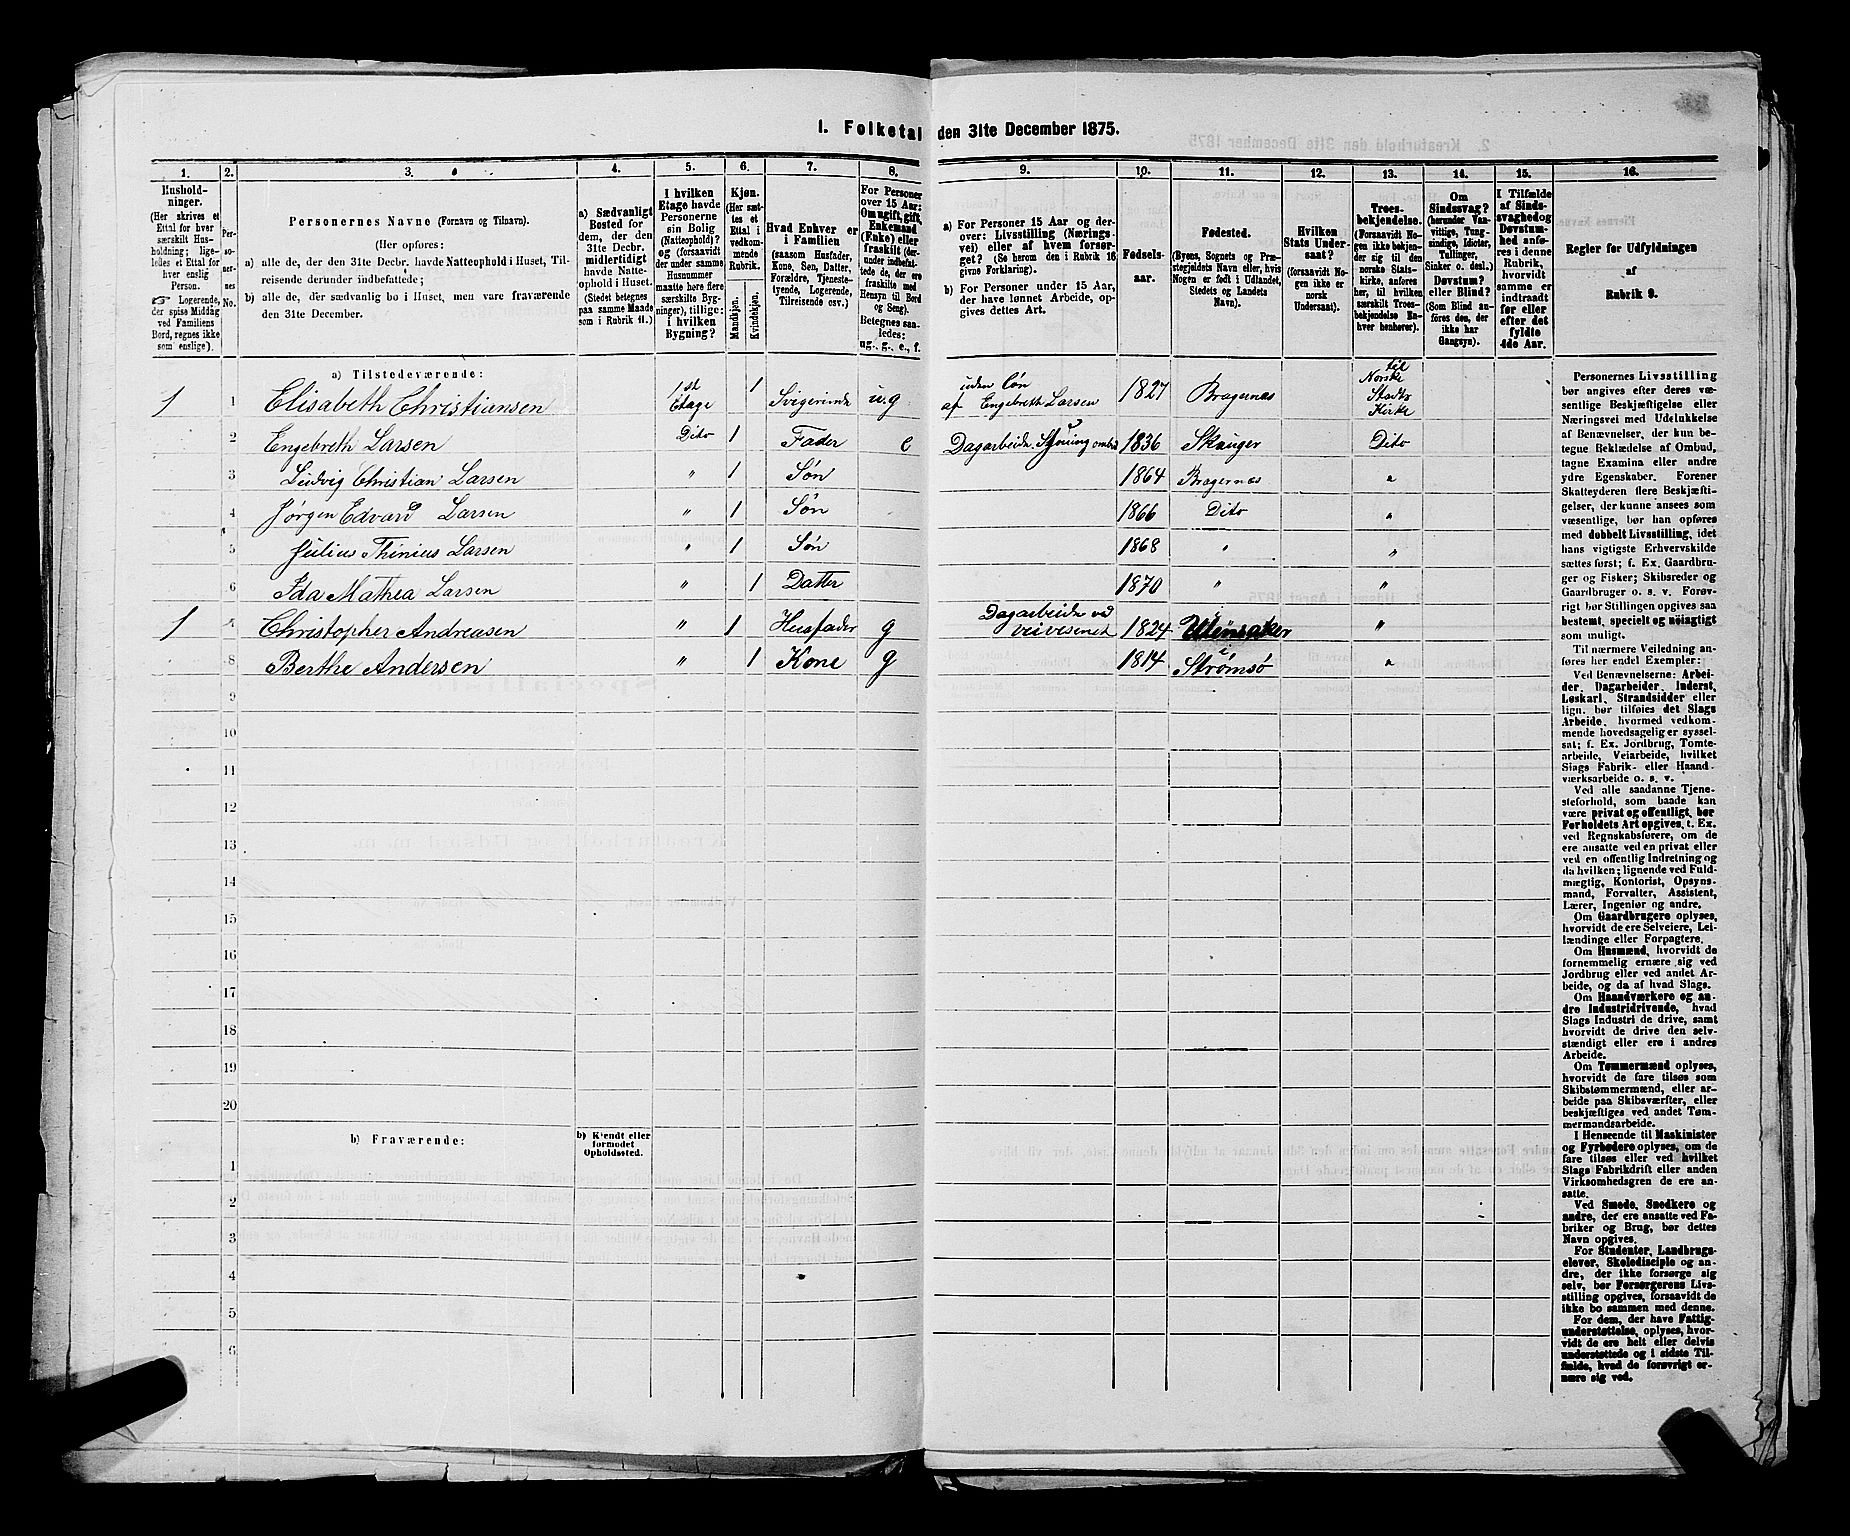 1. Folketal den 31te December 1875.
1. 2. 3. 4. 5. 6. 7. 8. 9. 10. 11. 12. 13. 14. 15. 16.
Hushold-
ninger.
(Her skrives et
Ettal for hver
særskilt Hus-
holdning; lige-
ledes et Ettal for
hver enslig
Person.
☞ Logerende,
der spise Middag
ved Familiens
Bord, regnes ikke
som enslige).
Per-
so-
ner-
nes
No.
Personernes Navne (Fornavn og Tilnavn).
(Her opføres:
a) alle de, der den 31te Decbr. havde Natteophold i Huset, Til-
reisende derunder indbefattede;
b) alle de, der sædvanlig bo i Huset, men vare fraværende
den 31te December.
a) Sædvanligt
Bosted for
dem, der den
31te Decbr.
midlertidigt
havde Natte-
ophold i Huset.
(Stedet betegnes
paa samme Maade
som i Rubrik 11.)
I hvilken
Etage havde
Personerne
sin Bolig
(Natteophold)?
og (forsaavidt
der under samme
Husnummer
maatte høre flere
særskilte Byg-
ninger), tillige:
i hvilken
Bygning?
Kjøn.
(Her sæt-
tes et
Ettal i
vedkom-
mende
Rubrik.
Mandkjøn.
Kvindekjøn.
Hvad Enhver er
i Familien
(saasom Husfader,
Kone, Søn, Datter,
Forældre, Tjeneste-
tyende, Logerende,
Tilreisende osv.)
For Personer
over 15 Aar:
Om ugift, gift,
Enkemand
(Enke) eller
fraskilt (der-
under indbefat-
tede de, der ere
fraskilte med
Hensyn til Bord
og Seng).
Betegnes saa-
ledes:
ug., g., e., f.
a) For Personer 15 Aar og der-
over: Livsstilling (Nærings-
vei) eller af hvem forsør-
get? (Se herom den i Rubrik 16
givne Forklaring).
b) For Personer under 15 Aar,
der have lønnet Arbeide, op-
gives dettes Art.
Fødsels-
aar.
Fødested.
(Byens, Sognets og Præ-
stegjeldets Navn eller, hvis
Nogen er født i Udlandet,
Stedets og Landets
Navn).
Hvilken
Stats Under-
saat?
(forsaavidt No-
gen ikke er
norsk
Undersaat).
Troes-
bekjendelse.
(Forsaavidt No-
gen ikke bekjen-
der sig til den
norske Stats-
kirke, anføres
her, til hvilken
særskilt Troes-
bekjendelse En-
hver henhører).
Om
Sindssvag?
(herunder Van-
vittige, Tung-
sindige, Idioter,
Tullinger,
Sinker o. desl.)
Døvstum?
eller Blind?
(Som Blind an-
føres den, der
ikke har
Gangsyn).
I Tilfælde
af Sinds-
svaghed og
Døvstum-
hed anfø-
res i denne
Rubrik,
hvorvidt
samme er
indtraadt
før eller
efter det
fyldte
4de Aar.
Regler for Udfyldningen
af
Rubrik 9.
a) Tilstedeværende:
1 1 Elisabeth Christiansen 1st Etage 1 Svigerinde u.g uden Løn af Engebreth Larsen 1827 Bragernæs til Norske Stads Kirke
2 Engebreth Larsen Dito 1 Fader e Dagarbeide 1836 Skauger Dito
3 Ludvig Christian Larsen " 1 Søn 1864 Bragernæs "
4 Jørgen Edvard Larsen " 1 Søn 1866 Dito "
5 Julius Thinius Larsen " 1 Søn 1868 " "
6 Ida Mathea Larsen " 1 Datter 1870 " "
1 7 Christopher Andreasen " 1 Husfader g Dagarbeide ved veivesenet 1824 Ulensaker "
8 Berthe Andersen " 1 Kone g 1814 Strømsø "
9
10
11
12
13
14
15
16
17
18
19
20
b) Fraværende:
b) Kjendt eller
formodet
Opholdssted.
1
2
3
4
5
6
Personernes Livsstilling
bør angives efter deres væ-
sentlige Beskjæftigelse eller
Næringsvei med Udelukkelse
af Benævnelser, der kun be-
tegne Beklædelse af Ombud,
tagne Examina eller andre
ydre Egenskaber. Forener
Skatteyderen flere Beskjæfti-
gelser, der kunne ansees som
væsentlige, bør han opføres
med dobbelt Livsstilling, idet
hans vigtigste Erhvervskilde
sættes først; f. Ex. Gaardbru-
ger og Fisker; Skibsreder og
Gaardbruger o. s. v. Forøv-
rigt bør Stillingen opgives saa
bestemt, specielt og nøiagtigt
som muligt.
Til nærmere Veiledning an-
føres her endel Exempler:
Ved Benævnelserne: Arbei-
der, Dagarbeider, Inderst,
Løskarl, Strandsidder eller
lign. bør tilføies det Slags
Arbeide, hvormed vedkom-
mende hovedsagelig er syssel-
sat; f. Ex. Jordbrug, Tomte-
arbeide, Veiarbeide, hvilket
Slags Fabrik- eller Haand-
værksarbeide o. s. v.
Ved alle saadanne Tjene-
steforhold, som baade kan
være privat og offentligt, bør
Forholdets Art opgives, t. Ex.
ved Regnskabsførere, om de
ere ansatte ved en privat eller
ved en offentlig Indretning og
da hvilken; lignende ved Fuld-
mægtig, Kontorist, Opsyns-
mand, Forvalter, Assistent,
Lærer, Ingeniør og andre.
Om Gaardbrugere oplyses,
hvorvidt de ere Selveiere, Lei-
lændinge eller Forpagtere.
Om Husmænd, hvorvidt de
fornemmelig ernære sig ved
Jordbrug eller ved andet Ar-
beide, og da af hvad Slags.
Om Haandværkere og an-
dre Industridrivende, hvad
Slags Industri de drive, samt
hvorvidt de drive den selv-
stændigt eller ere i andres
Arbeide.
Om Tømmermænd oplyses,
hvorvidt de fare tilsøs som
Skibstømmermænd, eller ar-
beide paa Skibsværfter, eller
beskjæftiges ved andet Tøm-
mermandsarbeide.
I Henseende til Maskinister
og Fyrbødere oplyses, om de
fare tilsøs eller ved hvilket
Slags Fabrikdrift eller anden
Virksomhedsgren de ere an-
satte.
Ved Smede, Snedkere og
andre, der ere ansatte ved Fa-
briker og Brug, bør dettes
Navn opgives.
For Studenter, Landbrugs-
elever, Skoledisciple og an-
dre, der ikke forsørge sig
selv, bør Forsørgerens Livs-
stilling opgives, forsaavidt de
ikke bo sammen med denne.
For dem, der have Fattig-
understøttelse, oplyses, hvor-
vidt de ere helt eller delvis
understøttede og i sidste Til-
fælde, hvad de forøvrigt er-
nære sig ved.